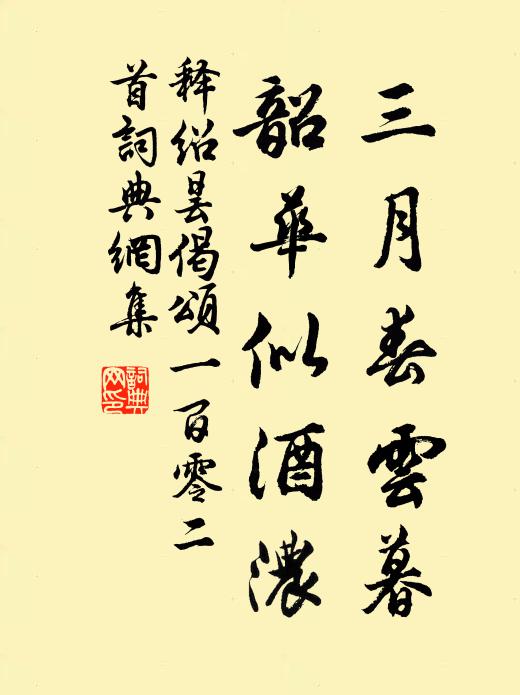 三月春雲暮
韶華似酒濃
释紹曇偈頌一百零二
首詞典網集
詞典
网印